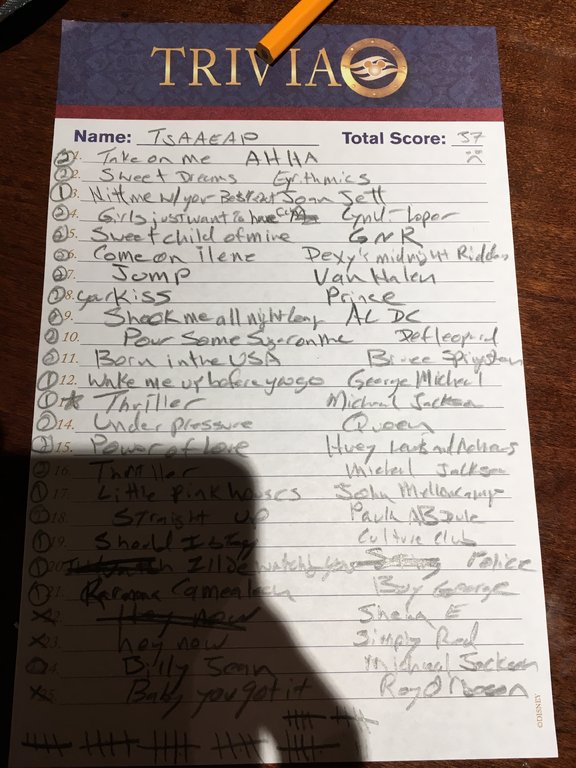 TRIVIA
Name: TSAAEAP Total Score: 37
1. Take on me AHHA
2. Sweet Dreams Eyrithmics
3. Hit me w/ your Best shot Joan Jett
4. Girls just want to have Cyndi Loper
5. Sweet child of mine GNR
6. Come on ilene Dexy's midnight Riddors
7. Jump Van Halen
8. your Kiss Prince
9. Shook me all night long AC DC
10. Pour Some Sugar on me Def leopard
11. Born in the USA Bruce Springsteen
12. Wake me up before you go George Micheal
Thriller Micheal Jackson
14. Under pressure Queen
15. Power of Love Huey Lewis and
16. Thriller Micheal Jackson
17. Little Pink houses John Mellencamp
18. Straight up Paula ABdule
19. Should I stay Culture Club
20. watching you Police
21. Karama Camealean Boy George
Hey now Shena E
23. hey now Simply Red
24. Billy Jean Micheal Jackson
25. Baby you got it Roy
©DISNEY